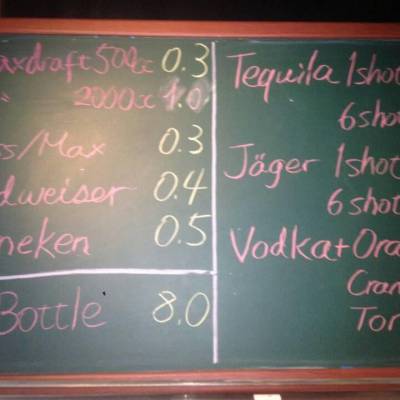 axdraft 500cc 0.3
" 2000cc 1.0
ss/Max 0.3
dweiser 0.4
neken 0.5
Bottle 8.0
Tequila 1shot
6shot
Jäger 1shot
6shot
Vodka+Ora
Cran
Tor